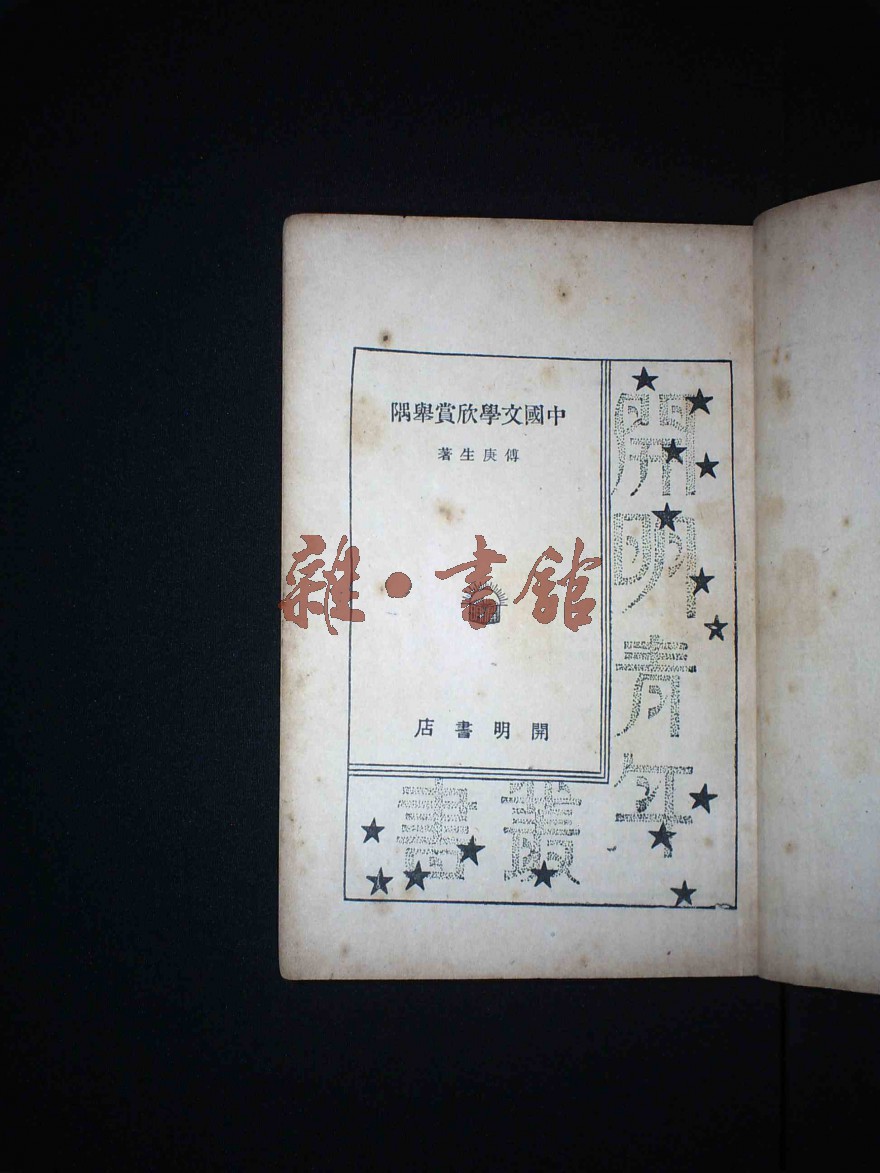 中國文學欣賞舉隅
傅庚生著
雜·書館
開明書店
開明青年
叢書